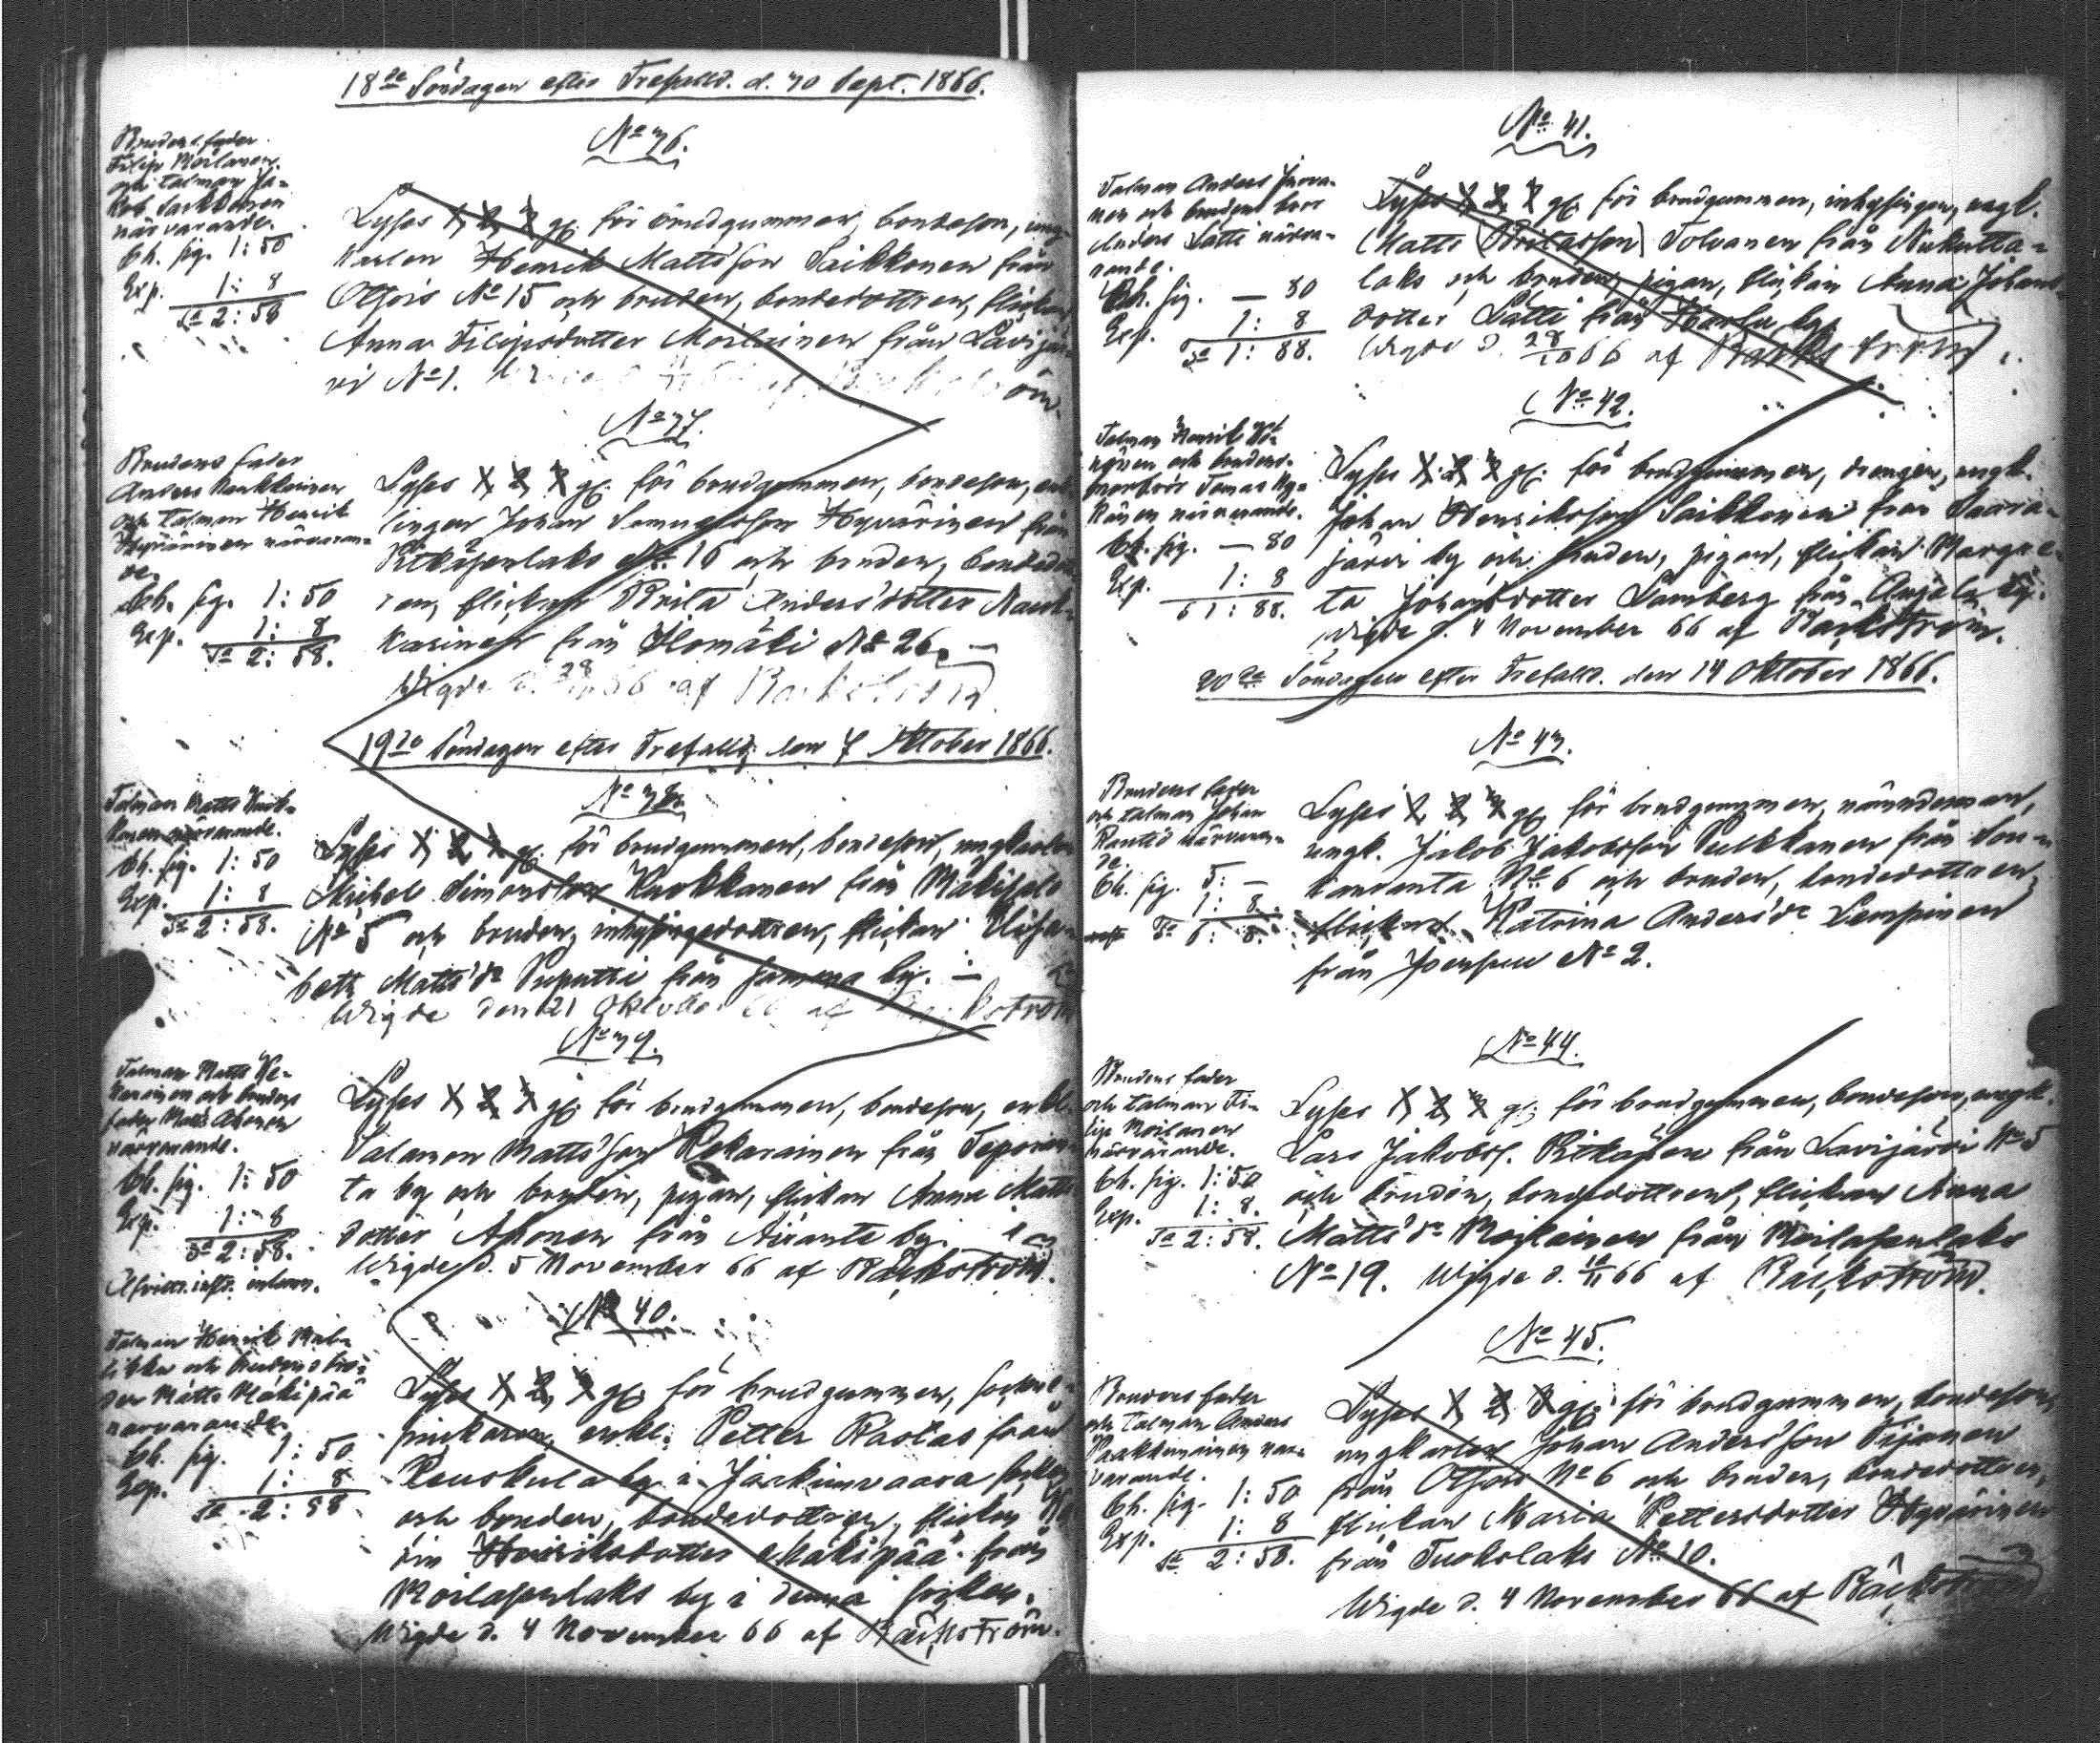 18de Söndagen efter Trefalld. d. 30 Sept. 1866.
No 36.
Brudens fader
Filip Moilanen
och talman Ja-
kob Saikkonen
närvarande.
Kh. sig. 1:50
Exp. 1:8
Sa 2:58
Lyses 1, 2, 3 gg. för brudgummen, bondeson, ung-
karlen Henrik Mattsson Saikkonen från
Otsois No 15 och bruden, bondedottren, flickan
Anna Filipsdotter Moilainen från Lavijär-
vi No 1.
No 37.
Brudens fader
Anders Naukkarinen
och talman Henrik
Hyvärinen närvaran-
de.
Kh. sig. 1:50
Exp. 1:8
Sa 2:58.
Lyses 1, 2, 3 gg. för brudgummen, bondeson, enk-
lingen Johan Samuelsson Hyvärinen från
Pitkäpenlaks No 16 och bruden, bondedott-
ren, flickan Brita Andersdotter Nauk-
karinen från Ilomäki No 26.
Wigde d. 28/10 66 af Backström
19de Söndagen efter Trefalld. den 7 Oktober 1866.
No 38.
Talman Matts
närvarande.
Kh. sig. 1:50
Exp. 1:8
Sa 2:58.
Lyses 1, 2, 3 gg. för brudgummen, bondeson, ungkarlen
Mickel Simonsson Kuokkanen från Mäkisalo
No 5 och bruden, inhysingedottren, flickan Elisa-
beth Matts dr Puputti från samma by.
Wigde den 21 Oktober 66 af Backström
No 39.
Talman Matts Ke-
karainen och brudens
fader Matts Ahonen
närvarande.
Kh. sig. 1:50
Exp. 1:8
Sa 2:58.
Lyses 1, 2, 3 gg. för brudgummen, bondeson, enkl.
Salamon Mattsson Kekarainen från
ta by och bruden, pigan, flickan Anna Matts
dotter Ahonen från by.
Wigde d. 5 November 66 af Bäckström.
No 40.
Talman Henrik
och brudens bro-
der Matts Mäkipää
närvarande.
Kh. sig. 1:50
Exp. 1:8
Sa 2:58
Lyses 1, 2, 3 gg. för brudgummen, socken-
enkl. Petter Rastas från
by i Jaakimvaara socken
och bruden, bondedottren, flickan
Henriksdotter Mäkipää från
Moilasenlaks by i denna socken.
Wigde d. 4 November 66 af Bäckström.
No 41.
Talman Anders
nen och brudens bror
Anders Lätti närva-
rande.
Kh. sig. — 80
Exp. 1:8
Sa 1:88.
Lyses 1, 2, 3 gg. för brudgummen, inhysingen, ungk.
Matts Tolvanen från Niukutta-
laks och bruden, pigan, flickan Anna Johans-
dotter Lätti från by.
Wigde d. 28/10 66 af Backström.
No 42.
Talman Henrik
och brudens
morbror Tomas
närvarande.
Kh. sig. — 80
Exp. 1:8
S 1:88.
Lyses 1, 2, 3 gg. för brudgummen, drengen, ungk.
Johan Henriksson Saikkonen från Saara-
järvi by och bruden, pigan, flickan Margre-
ta Johansdotter Lamberg från Anjala by.
Wigde d. 4 November 66 af Backström.
20de Söndagen efter Trefalld. den 14 Oktober 1866.
No 43.
Brudens fader
och talman Johan
närvaran-
de.
Kh. sig. 5:—
1:8.
Sa 6:8.
Lyses 1, 2, 3 gg. för brudgummen, nämndeman,
ungk. Jakob Jakobsson Pulkkanen från
No 6 och bruden, bondedottren,
flickan Katrina Anders dr Lempinen
från Joensuu No 2.
No 44.
Brudens fader
och talman Fi-
lip Moilanen
närvarande.
Kh. sig. 1:50
Exp. 1:8.
Sa 2:58.
Lyses 1, 2, 3 gg. för brudgummen, bondeson, ungk.
Lars Jakobss. Pitkänen från Lavijärvi No 5
och bruden, bondedottren, flickan Anna
Matts dr Moilainen från Moilasenlaks
No 19. Wigde d. 18/11 66 af Bäckström.
No 45.
Brudens fader
och talman Anders
när-
varande.
Kh. sig. 1:50
Exp. 1:8
Sa 2:58.
Lyses 1, 2, 3 gg. för brudgummen, bondeson,
ungkarlen Johan Andersson Pijanen
från Otsois No 6 och bruden, bondedottren,
flickan Maria Pettersdotter Hyvärinen
från Tuokslaks No 10.
Wigde d. 4 November 66 af Bäckström